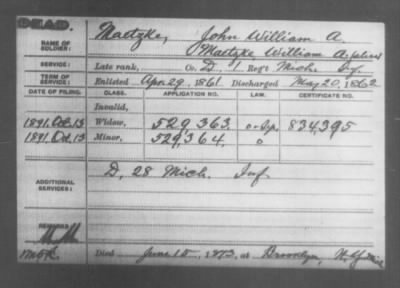 DEAD.
NAME OF SOLDIER: Matzke, John William A.
Matzke William A. (alias)
SERVICE: Late rank, Co. D, 1 Reg't Mich. Inf.
TERM OF SERVICE: Enlisted Apr. 29, 1861 Discharged May 20, 1862
DATE OF FILING. CLASS. APPLICATION NO. LAW. CERTIFICATE NO.
Invalid,
1891, Oct. 13 Widow, 529,363. 834,395
1891, Oct. 13 Minor, 529,364.
ADDITIONAL SERVICES: D, 28 Mich. Inf
REMARKS:
Died June 10, 1873, at Brooklyn, N.Y.